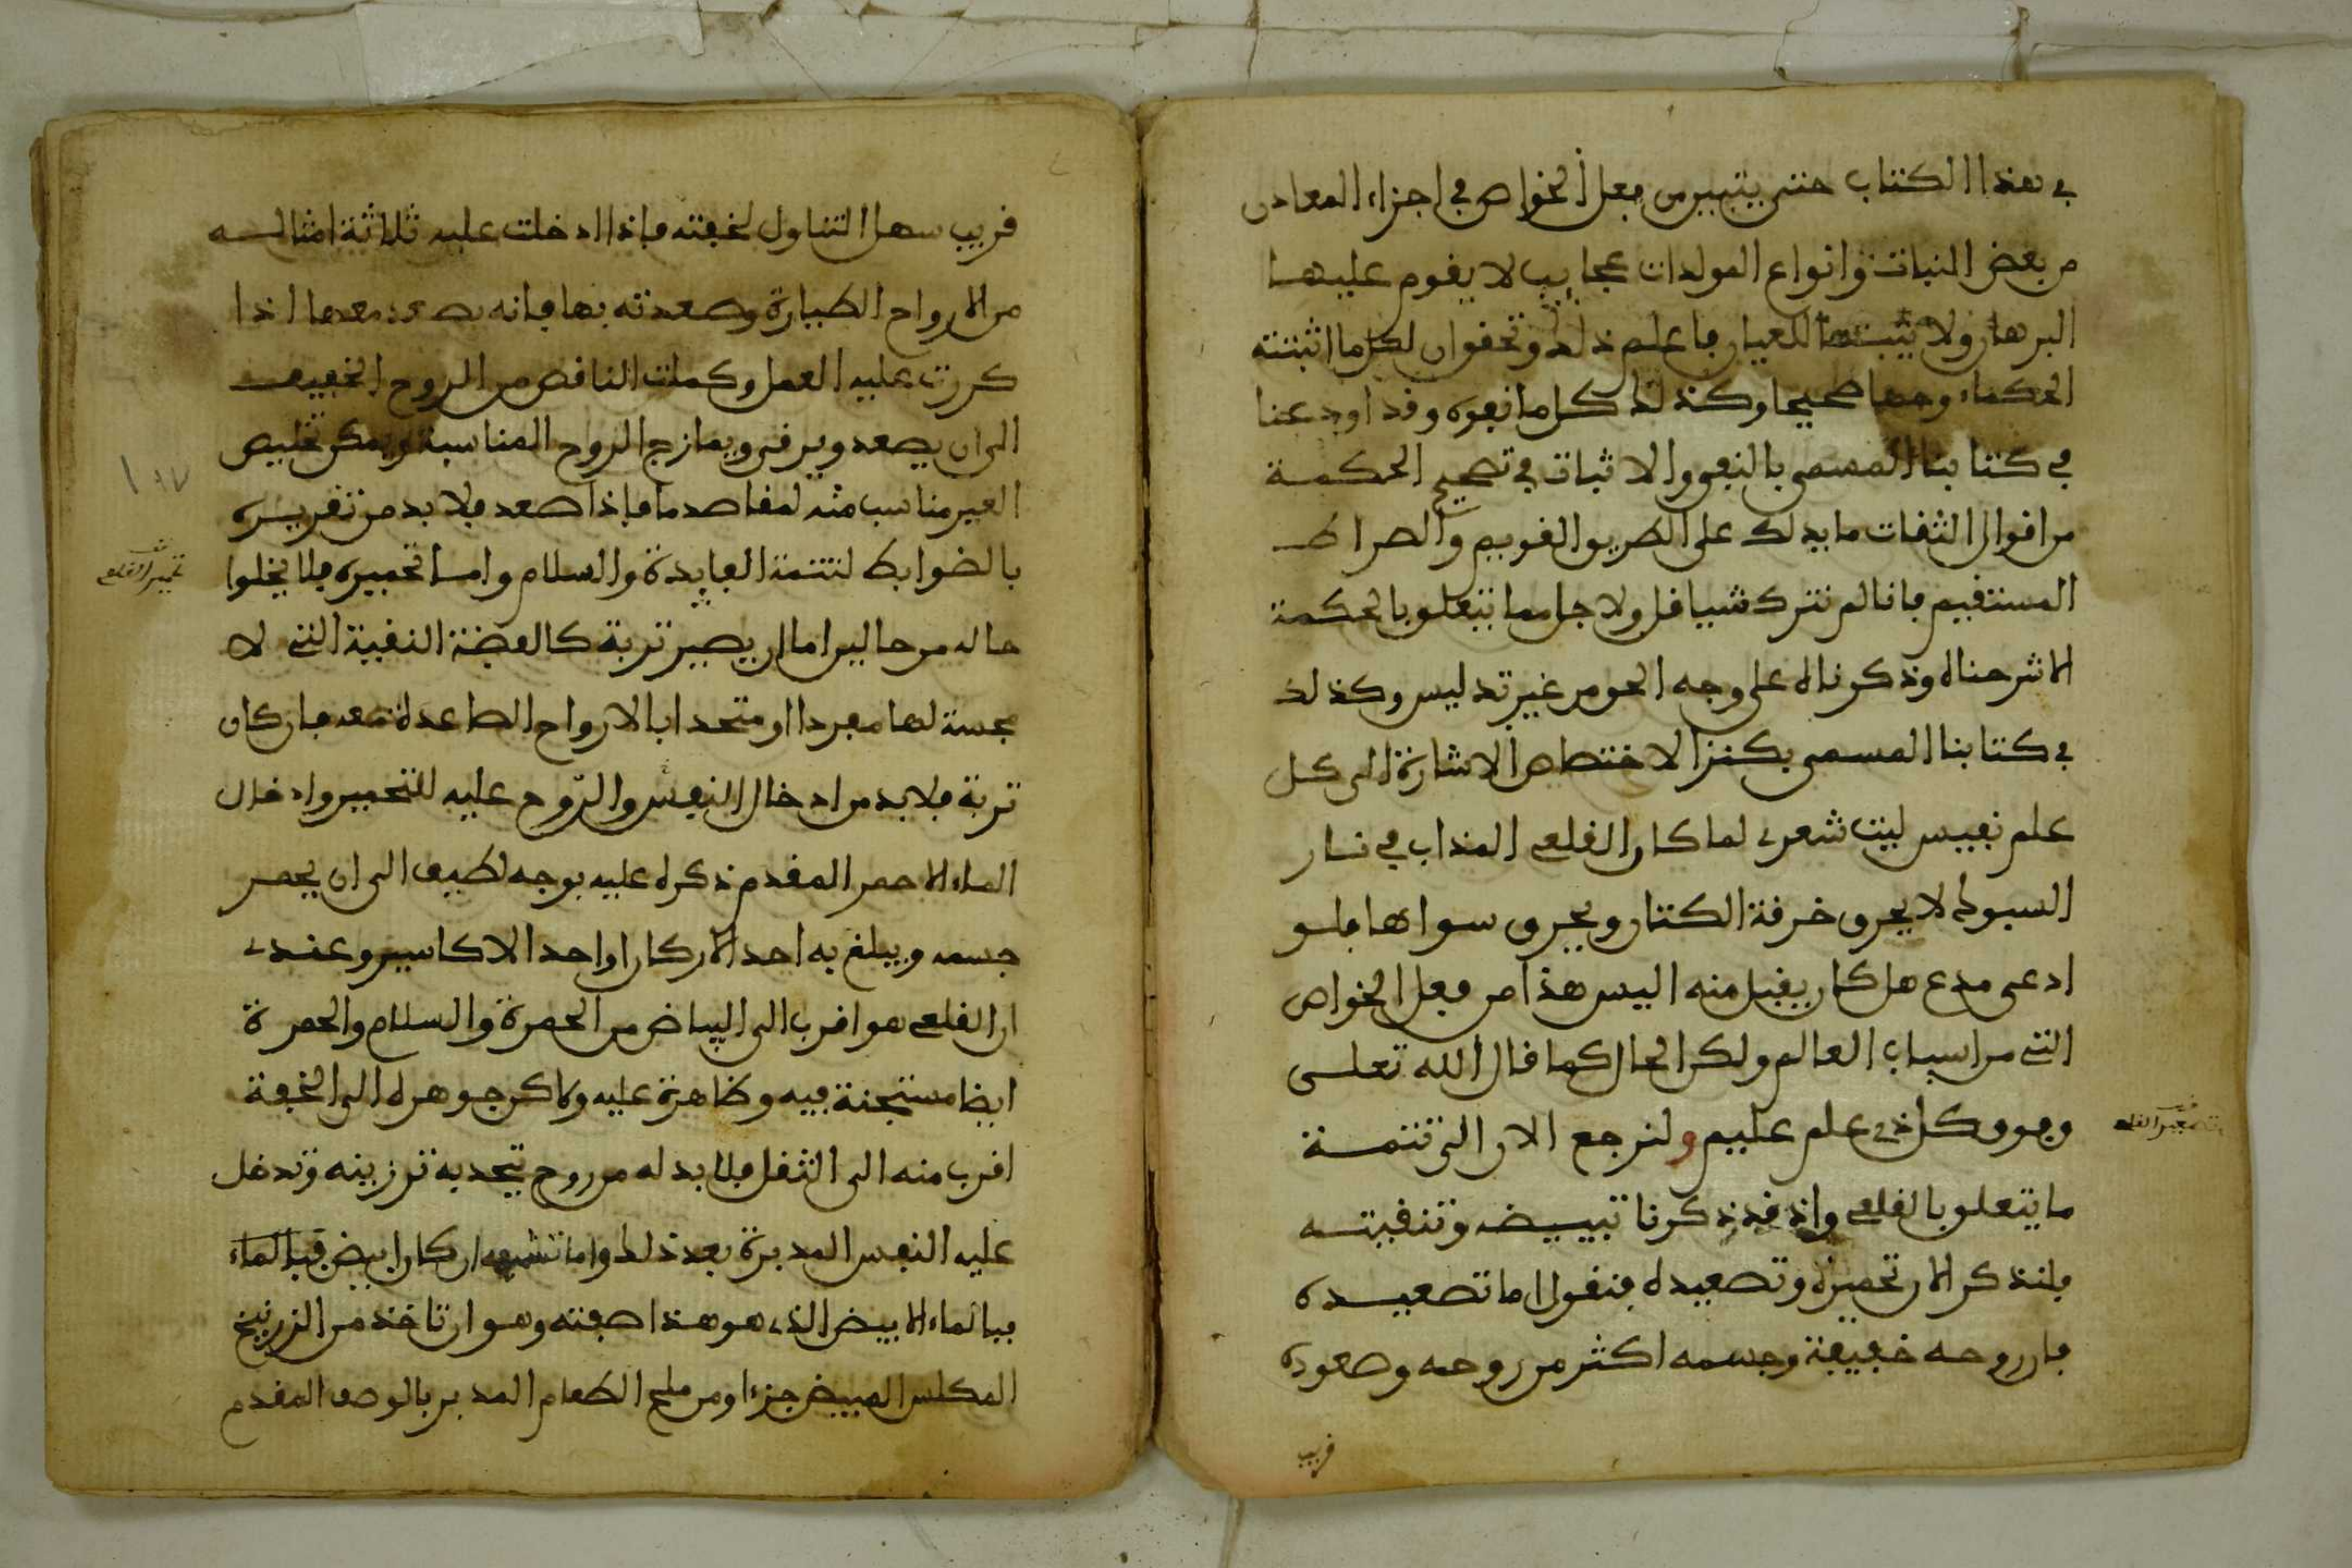 في هذا الكتاب حتى يتبين من فعل الخواص في اجزاء المعادن
من بعض النبات وانواع المولدات عجايب لا يقوم عليها
البرهان ولا يثبتها العيان فاعلم ذلك وتحقق ان لكل ما اثبتته
الحكماء وجها صحيحا وكذلك كل ما نفوه وقد اودعنا
في كتابنا المسمى بالنفي والاثبات في تصحيح الحكمة
من اقوال الثقات ما يدلك على الطريق القويم والصراط
المستقيم فانا لم نترك شيا قل ولا جل مما يتعلق بالحكمة
الا شرحناه وذكرناه على وجه الحق من غير تدليس وكذلك
في كتابنا المسمى بكنز الاختصاص الاشارة الى كل
علم نفيس ليت شعرى لما كان القلعي المذاب في نار
السبوك لا يحرق خرقة الكتان ويحرق سواها فلو
ادعى مدع هل كان يقبل منه اليس هذا من فعل الخواص
التي من اسباب العالم ولكن الحال كما قال الله تعلى
وفوق كل ذي علم عليم ولنرجع الان الى تتمة
ما يتعلق بالقلعي واذ قد ذكرنا تبييضه وتنقيته
فلنذكر الان تحميره وتصعيده فنقول اما تصعيده
فان روحه خفيفة وجسمه اكثر من روحه وصعوده
قريب
قريب سهل التناول لخفته فاذا ادخلت عليه ثلاثة امثاله
من الارواح الطيارة وصعدته بها فانه يصعد معها اذا
كررت عليه العمل وكملت الناقص من الروح الخفيف
الى ان يصعد ويرقى ويمازج الروح المناسبة ويمكن تخليص
الغير مناسب منه لمقاصد ما فاذا صعد فلا بد من تقريره
بالضوابط لتتمة الفايدة والسلام واما تحميره فلا يخلوا
حاله من حالين اما ان يصير تربة كالفضة النقية التي لا
مجسة لها مفردا او متحدا بالارواح الصاعدة معه فان كان
تربة فلا بد من ادخال النفس والروح عليه للتحمير وادخال
الماء الاحمر المقدم ذكره عليه بوجه لطيف الى ان يحمر
جسمه ويبلغ به احد الاركان او احد الاكاسير وعندى
ان القلعي هو اقرب الى البياض من الحمرة والسلام والحمرة
ايضا مستجنة فيه وظاهرة عليه ولاكن جوهره الى الخفة
اقرب منه الى الثقل فلا بد له من روح يتحد به ترزينه وتدخل
عليه النفس المدبرة بعد ذلك واما تشميعه ان كان ابيض فبالماء
فبالماء الابيض الذى هو هذا صفته وهو ان تاخذ من الزرنيخ
المكلس المبيض جزءا ومن ملح الطعام المدبر بالوصف المقدم
تحمير القلعي
١٨٧